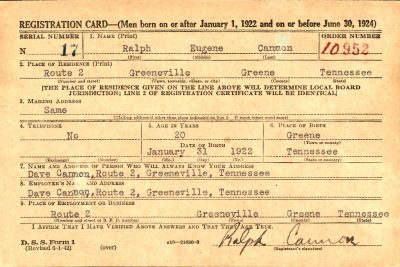 REGISTRATION CARD—(Men born on or after January 1, 1922 and on or before June 30, 1924)
SERIAL NUMBER 1. NAME (Print) ORDER NUMBER
N 17 Ralph Eugene Cannon 10952
(First) (Middle) (Last)
2. PLACE OF RESIDENCE (Print)
Route 2 Greeneville Greene Tennessee
(Number and street) (Town, township, village, or city) (County) (State)
[THE PLACE OF RESIDENCE GIVEN ON THE LINE ABOVE WILL DETERMINE LOCAL BOARD
JURISDICTION; LINE 2 OF REGISTRATION CERTIFICATE WILL BE IDENTICAL]
3. MAILING ADDRESS
Same
[Mailing address if other than place indicated on line 2. If same insert word same]
4. TELEPHONE 5. AGE IN YEARS 6. PLACE OF BIRTH
No 20 Greene
DATE OF BIRTH (Town or county)
January 31 1922 Tennessee
(Exchange) (Number) (Mo.) (Day) (Yr.) (State or country)
7. NAME AND ADDRESS OF PERSON WHO WILL ALWAYS KNOW YOUR ADDRESS
Dave Cannon, Route 2, Greeneville, Tennessee
8. EMPLOYER'S NAME AND ADDRESS
Dave Cannon, Route 2, Greeneville, Tennessee
9. PLACE OF EMPLOYMENT OR BUSINESS
Route 2 Greeneville Greene Tennessee
(Number and street or R. F. D. number) (Town) (County) (State)
I AFFIRM THAT I HAVE VERIFIED ABOVE ANSWERS AND THAT THEY ARE TRUE.
D. S. S. Form 1
(Revised 6-1-42) (over) Ralph Cannon
(Registrant's signature)